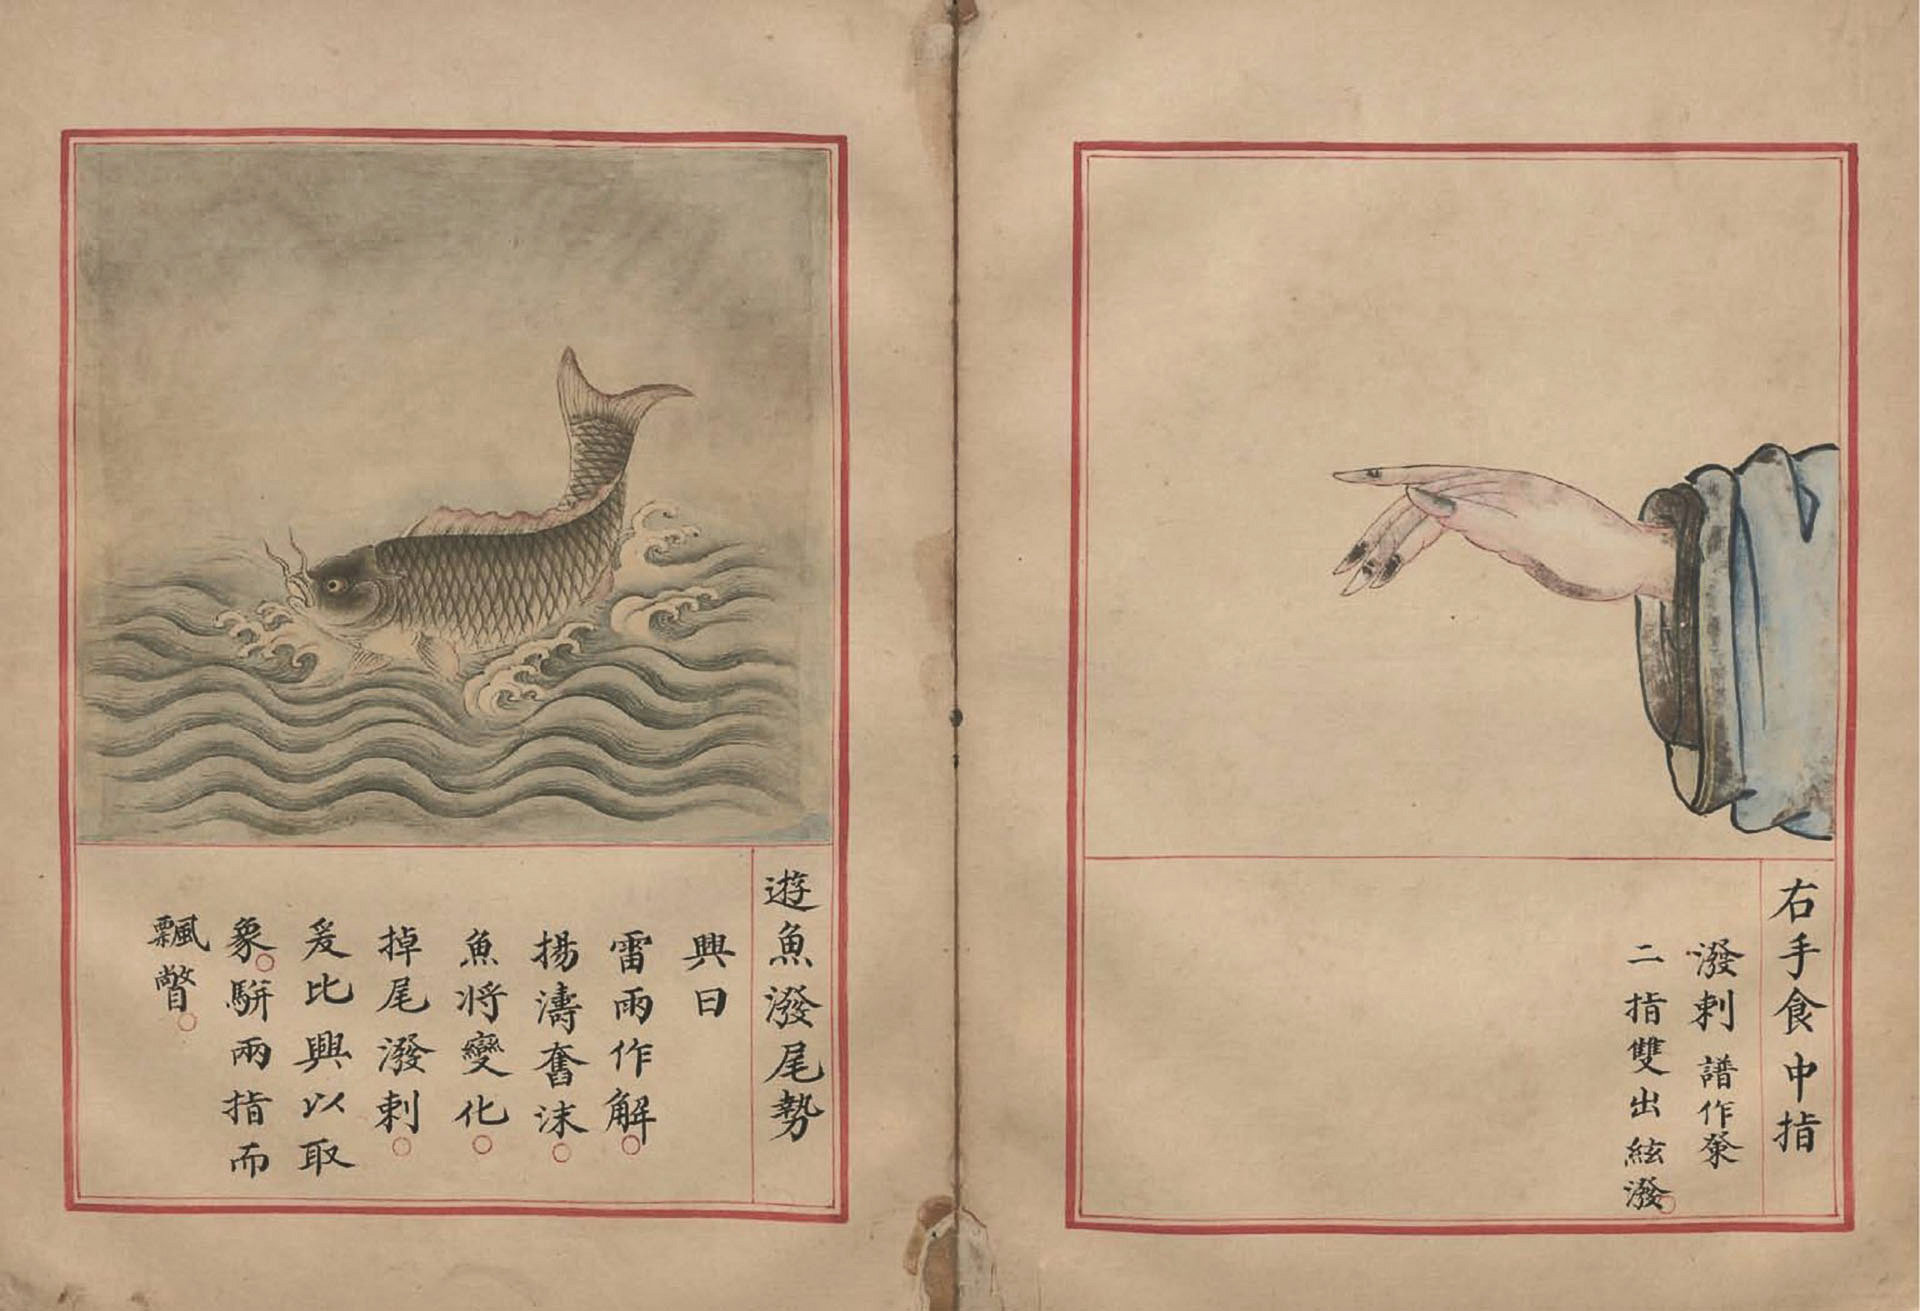 右手食中指
潑剌 譜作𤼲
二指雙出絃潑○
遊魚潑尾勢
興曰
雷雨作解○
揚濤奮沫○
魚將變化○
掉尾潑剌○
爰比興以取
象○駢兩指而
飄瞥○